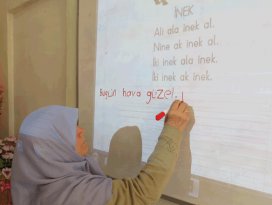 İNEK
Ali ala inek al.
Nine ak inek al.
İki inek ala inek.
İki inek ak inek.
Bugün hava güzel.